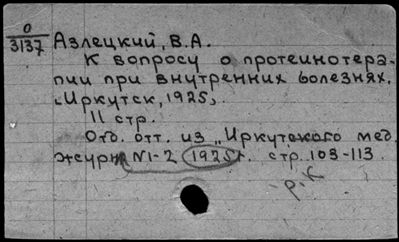 О
3137
Азлецкий, В.А.
К вопросу о протеинотера-
пии при внутренних болезнях.
<Иркутск, 1925>.
11 стр.
Отд. отт. из "Иркутского мед.
журн. №1-2 1925г. стр. 103-113.
р.к